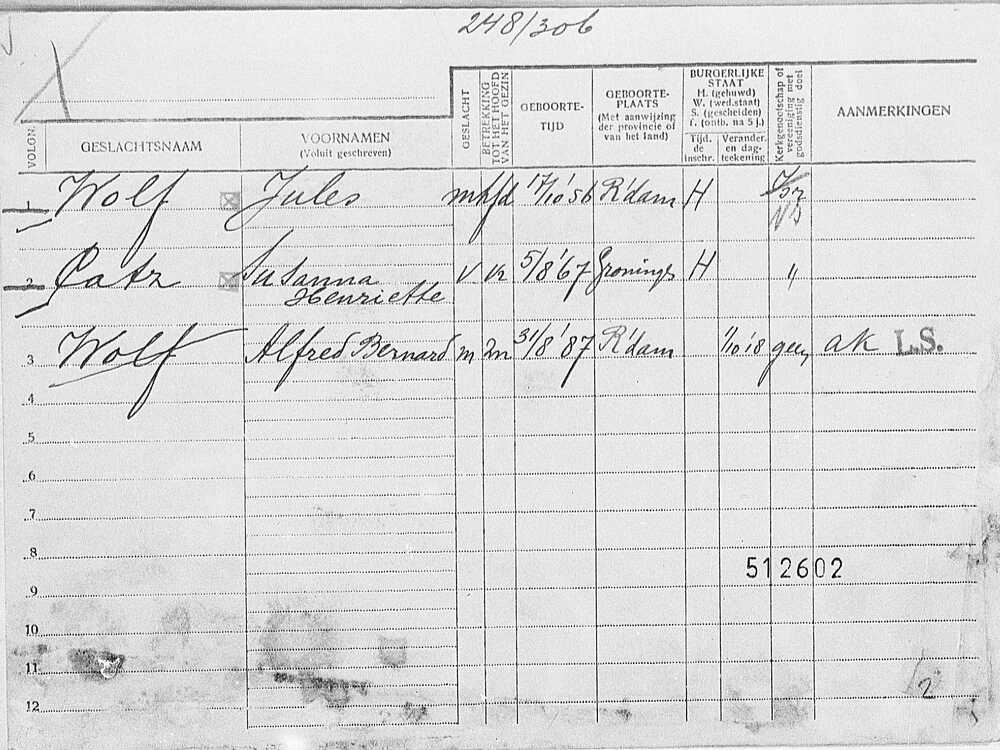 248/306
VOLGN.
GESLACHTSNAAM
VOORNAMEN
(Voluit geschreven)
GESLACHT
BETREKKING
TOT HET HOOFD
VAN HET GEZIN
GEBOORTE-
TIJD
GEBOORTE-
PLAATS
(Met aanwijzing
der provincie of
van het land)
BURGERLIJKE
STAAT
H. (gehuwd)
W. (wed.staat)
S. (gescheiden)
(ontb. na 5 j.)
Tijd.
de
inschr.
Verander.
en dag-
teekening
Kerkgenootschap of
vereeniging met
godsdienstig doel
AANMERKINGEN
1 Wolf Jules m hfd 17/10 '56 R'dam H
2 Catz Susanna V 5/8 '67 H "
Henriette
3 Wolf Alfred Bernard m zn 31/8 '87 R'dam 1/10 '18 geen ak L.S.
4
5
6
7
8
512602
9
10
11
12
2